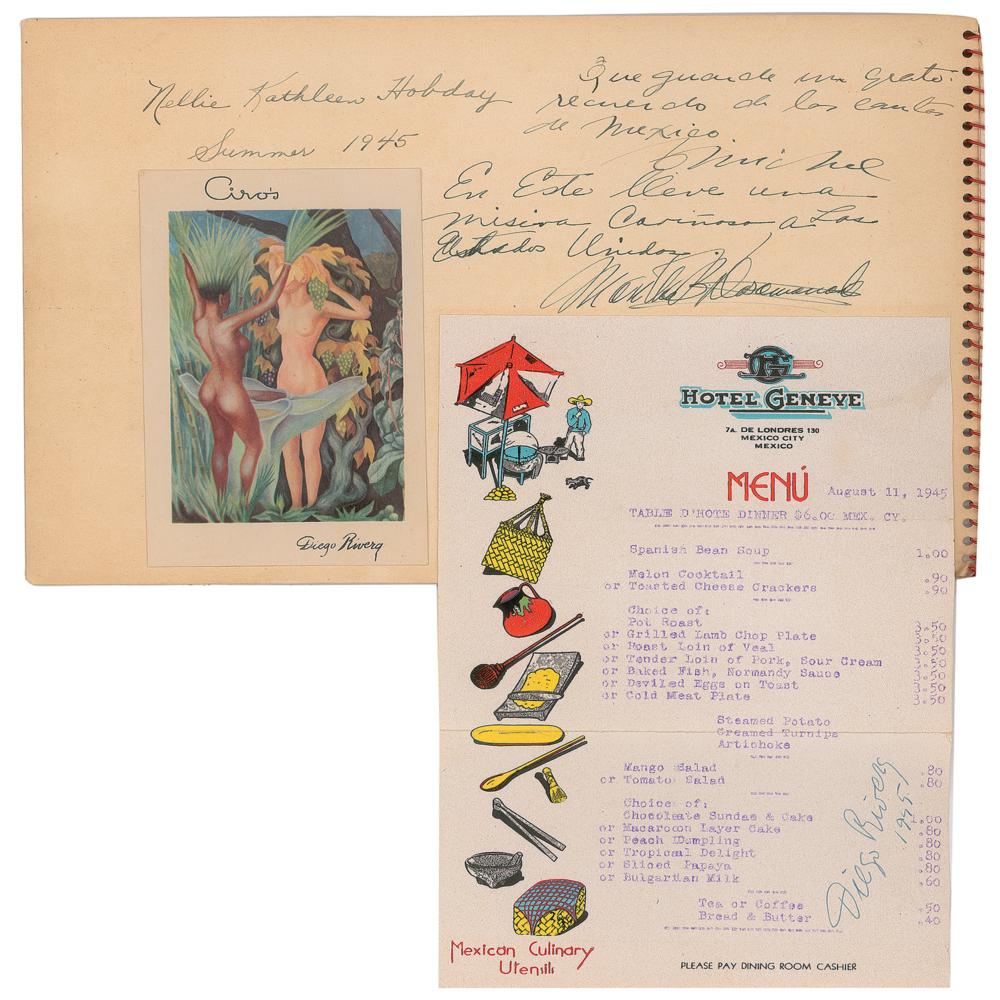 Nellie Kathleen Hobday
Summer 1945
Que guarde un grato
recuerdo de los cantos
de Mexico.
En Este lleve una
misiva Cariñosa a Los
Estados Unidos
Ciro's
Diego Rivera
HOTEL GENEVE
7A. DE LONDRES 130
MEXICO CITY
MEXICO
MENÚ
August 11, 1945
TABLE D'HOTE DINNER $6.00 MEX. CY.
Spanish Bean Soup 1.00
Melon Cocktail .90
or Toasted Cheese Crackers .90
Choice of:
Pot Roast 3.50
or Grilled Lamb Chop Plate 3.50
or Roast Loin of Veal 3.50
or Tender Loin of Pork, Sour Cream 3.50
or Baked Fish, Normandy Sauce 3.50
or Deviled Eggs on Toast 3.50
or Cold Meat Plate 3.50
Steamed Potato
Creamed Turnips
Artichoke
Mango Salad .80
or Tomato Salad .80
Choice of:
Chocolate Sundae & Cake 1.00
or Macaroon Layer Cake .80
or Peach Dumpling .80
or Tropical Delight .80
or Sliced Papaya .80
or Bulgartian Milk .60
Tea or Coffee .50
Bread & Butter .40
Diego Rivera
1945
Mexican Culinary
Utensils
PLEASE PAY DINING ROOM CASHIER